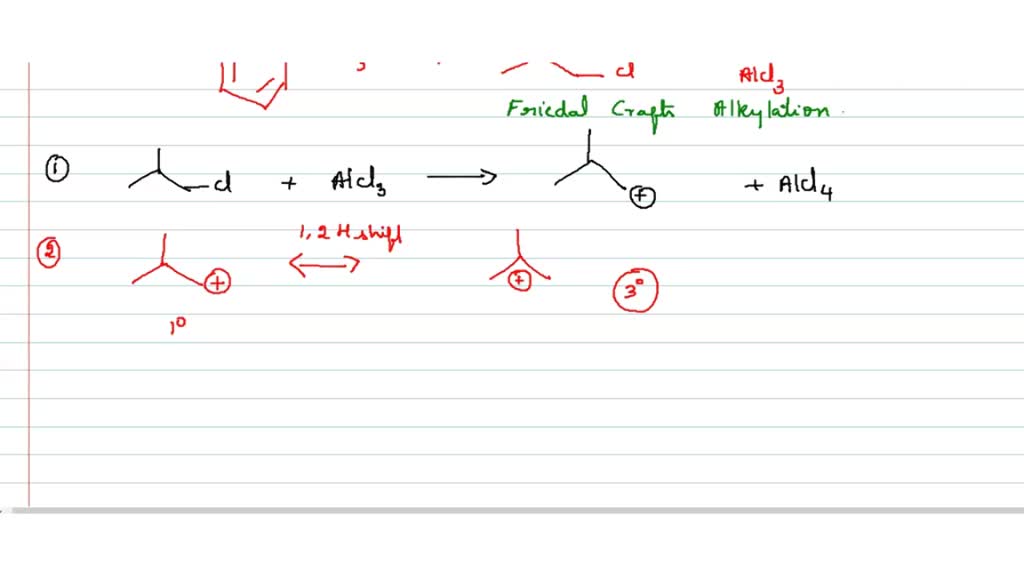 Cl AlCl3
Friedal Crafts Alkylation
① Cl + AlCl3 ⟶ + + AlCl4
1,2 H shift
② + ⟷ + 3°
1°